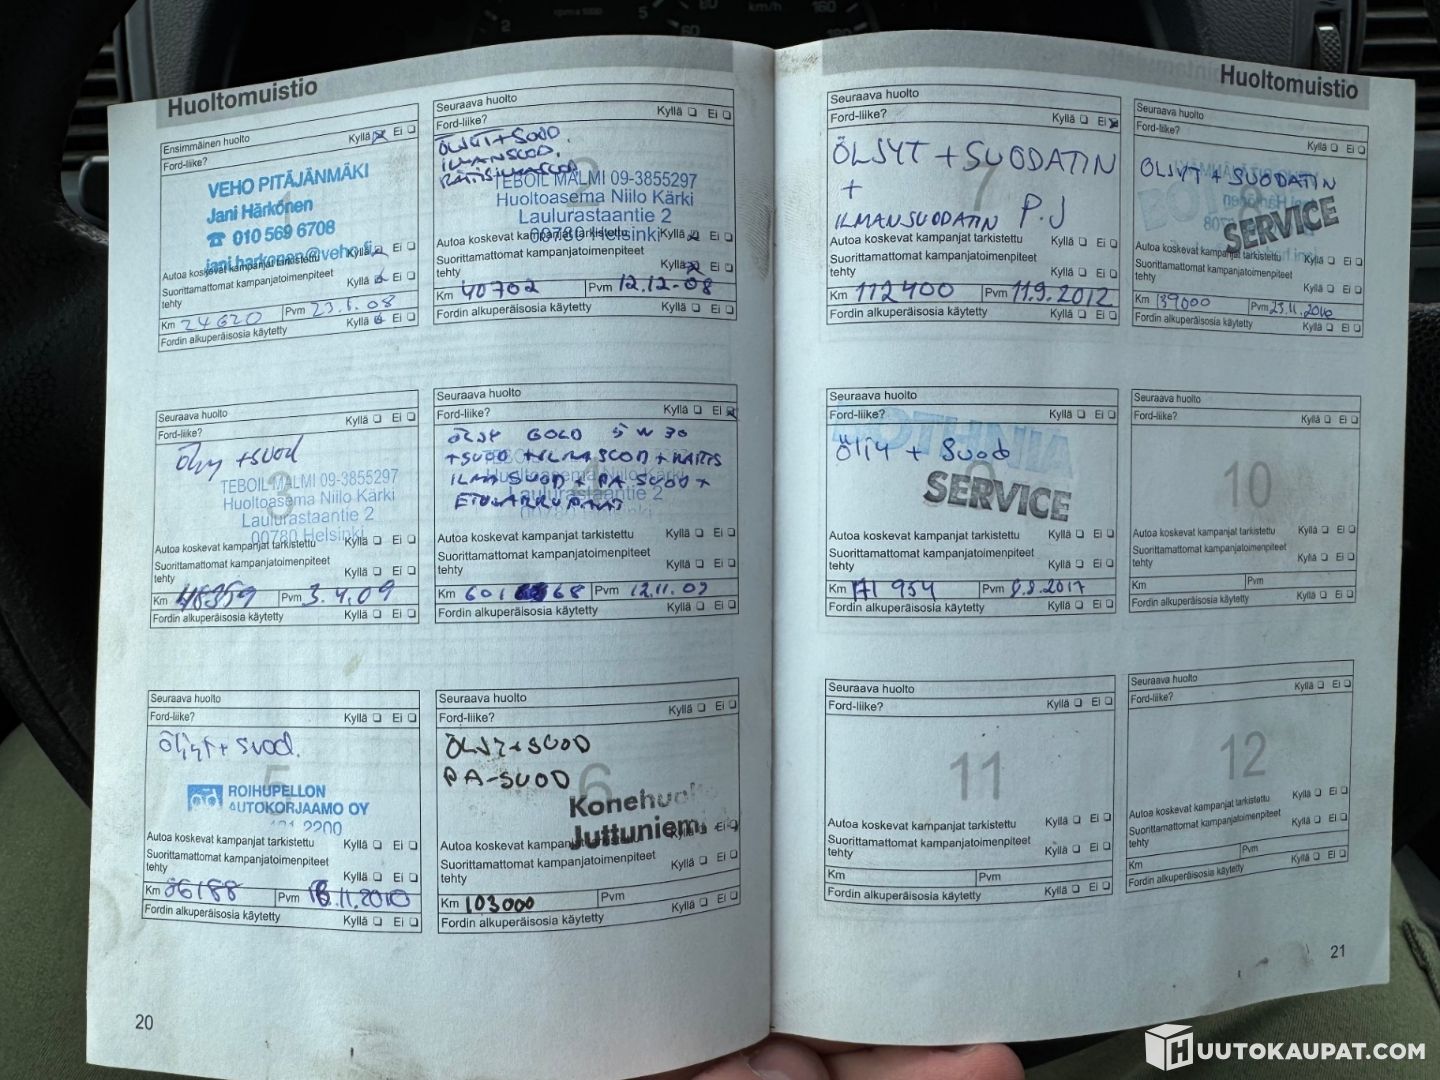 Huoltomuistio
Ensimmäinen huolto
Ford-liike?
Kyllä Ei
VEHO PITÄJÄNMÄKI
Jani Härkönen
☎ 010 569 6708
jani.harkonen@veho.fi
Autoa koskevat kampanjat tarkistettu
Kyllä Ei
Suorittamattomat kampanjatoimenpiteet
tehty
Kyllä Ei
Km 24620 Pvm
Fordin alkuperäisosia käytetty
Kyllä Ei
Seuraava huolto
Ford-liike?
Kyllä Ei
ÖLJYT+SUOD
ILMANSUOD.
TEBOIL MALMI 09-3855297
Huoltoasema Niilo Kärki
Laulurastaantie 2
00780 Helsinki
Autoa koskevat kampanjat tarkistettu
Kyllä Ei
Suorittamattomat kampanjatoimenpiteet
tehty
Kyllä Ei
Km 40702 Pvm 12.12-08
Fordin alkuperäisosia käytetty
Kyllä Ei
Seuraava huolto
Ford-liike?
Kyllä Ei
Öljy +suod
3
TEBOIL MALMI 09-3855297
Huoltoasema Niilo Kärki
Laulurastaantie 2
00780 Helsinki
Autoa koskevat kampanjat tarkistettu
Kyllä Ei
Suorittamattomat kampanjatoimenpiteet
tehty
Kyllä Ei
Km 48359 Pvm 3.4.09
Fordin alkuperäisosia käytetty
Kyllä Ei
Seuraava huolto
Ford-liike?
Kyllä Ei
ÖLJY GOLD 5W30
ILMANSUOD + PA SUOD +
Huoltoasema Niilo Kärki
Laulurastaantie 2
Autoa koskevat kampanjat tarkistettu
Kyllä Ei
Suorittamattomat kampanjatoimenpiteet
tehty
Kyllä Ei
Km Pvm 12.11.09
Fordin alkuperäisosia käytetty
Kyllä Ei
Seuraava huolto
Ford-liike?
Kyllä Ei
Öljyt+ suod.
5
ROIHUPELLON
AUTOKORJAAMO OY
2200
Autoa koskevat kampanjat tarkistettu
Kyllä Ei
Suorittamattomat kampanjatoimenpiteet
tehty
Kyllä Ei
Km Pvm
Fordin alkuperäisosia käytetty
Kyllä Ei
Seuraava huolto
Ford-liike?
Kyllä Ei
ÖLJY+SUOD
PA-SUOD
6
Konehuo
Juttuniem
Autoa koskevat kampanjat tarkistettu
Kyllä Ei
Suorittamattomat kampanjatoimenpiteet
tehty
Kyllä Ei
Km 103000 Pvm
Fordin alkuperäisosia käytetty
Kyllä Ei
20
Huoltomuistio
Seuraava huolto
Ford-liike?
Kyllä Ei
ÖLJYT + SUODATIN
7
+
ILMANSUODATIN P.J
Autoa koskevat kampanjat tarkistettu
Kyllä Ei
Suorittamattomat kampanjatoimenpiteet
tehty
Kyllä Ei
Km 112400 Pvm 11.9.2012
Fordin alkuperäisosia käytetty
Kyllä Ei
Seuraava huolto
Ford-liike?
Kyllä Ei
ÖLJYT + SUODATIN
SERVICE
Autoa koskevat kampanjat tarkistettu
Kyllä Ei
Suorittamattomat kampanjatoimenpiteet
tehty
Kyllä Ei
Km 139000 Pvm
Fordin alkuperäisosia käytetty
Kyllä Ei
Seuraava huolto
Ford-liike?
Kyllä Ei
Öljy + Suod
9
SERVICE
Autoa koskevat kampanjat tarkistettu
Kyllä Ei
Suorittamattomat kampanjatoimenpiteet
tehty
Kyllä Ei
Km 171 954 Pvm
Fordin alkuperäisosia käytetty
Kyllä Ei
Seuraava huolto
Ford-liike?
Kyllä Ei
10
Autoa koskevat kampanjat tarkistettu
Kyllä Ei
Suorittamattomat kampanjatoimenpiteet
tehty
Kyllä Ei
Km Pvm
Fordin alkuperäisosia käytetty
Kyllä Ei
Seuraava huolto
Ford-liike?
Kyllä Ei
11
Autoa koskevat kampanjat tarkistettu
Kyllä Ei
Suorittamattomat kampanjatoimenpiteet
tehty
Kyllä Ei
Km Pvm
Fordin alkuperäisosia käytetty
Kyllä Ei
Seuraava huolto
Ford-liike?
Kyllä Ei
12
Autoa koskevat kampanjat tarkistettu
Kyllä Ei
Suorittamattomat kampanjatoimenpiteet
tehty
Kyllä Ei
Km Pvm
Fordin alkuperäisosia käytetty
Kyllä Ei
21
HUUTOKAUPAT.COM